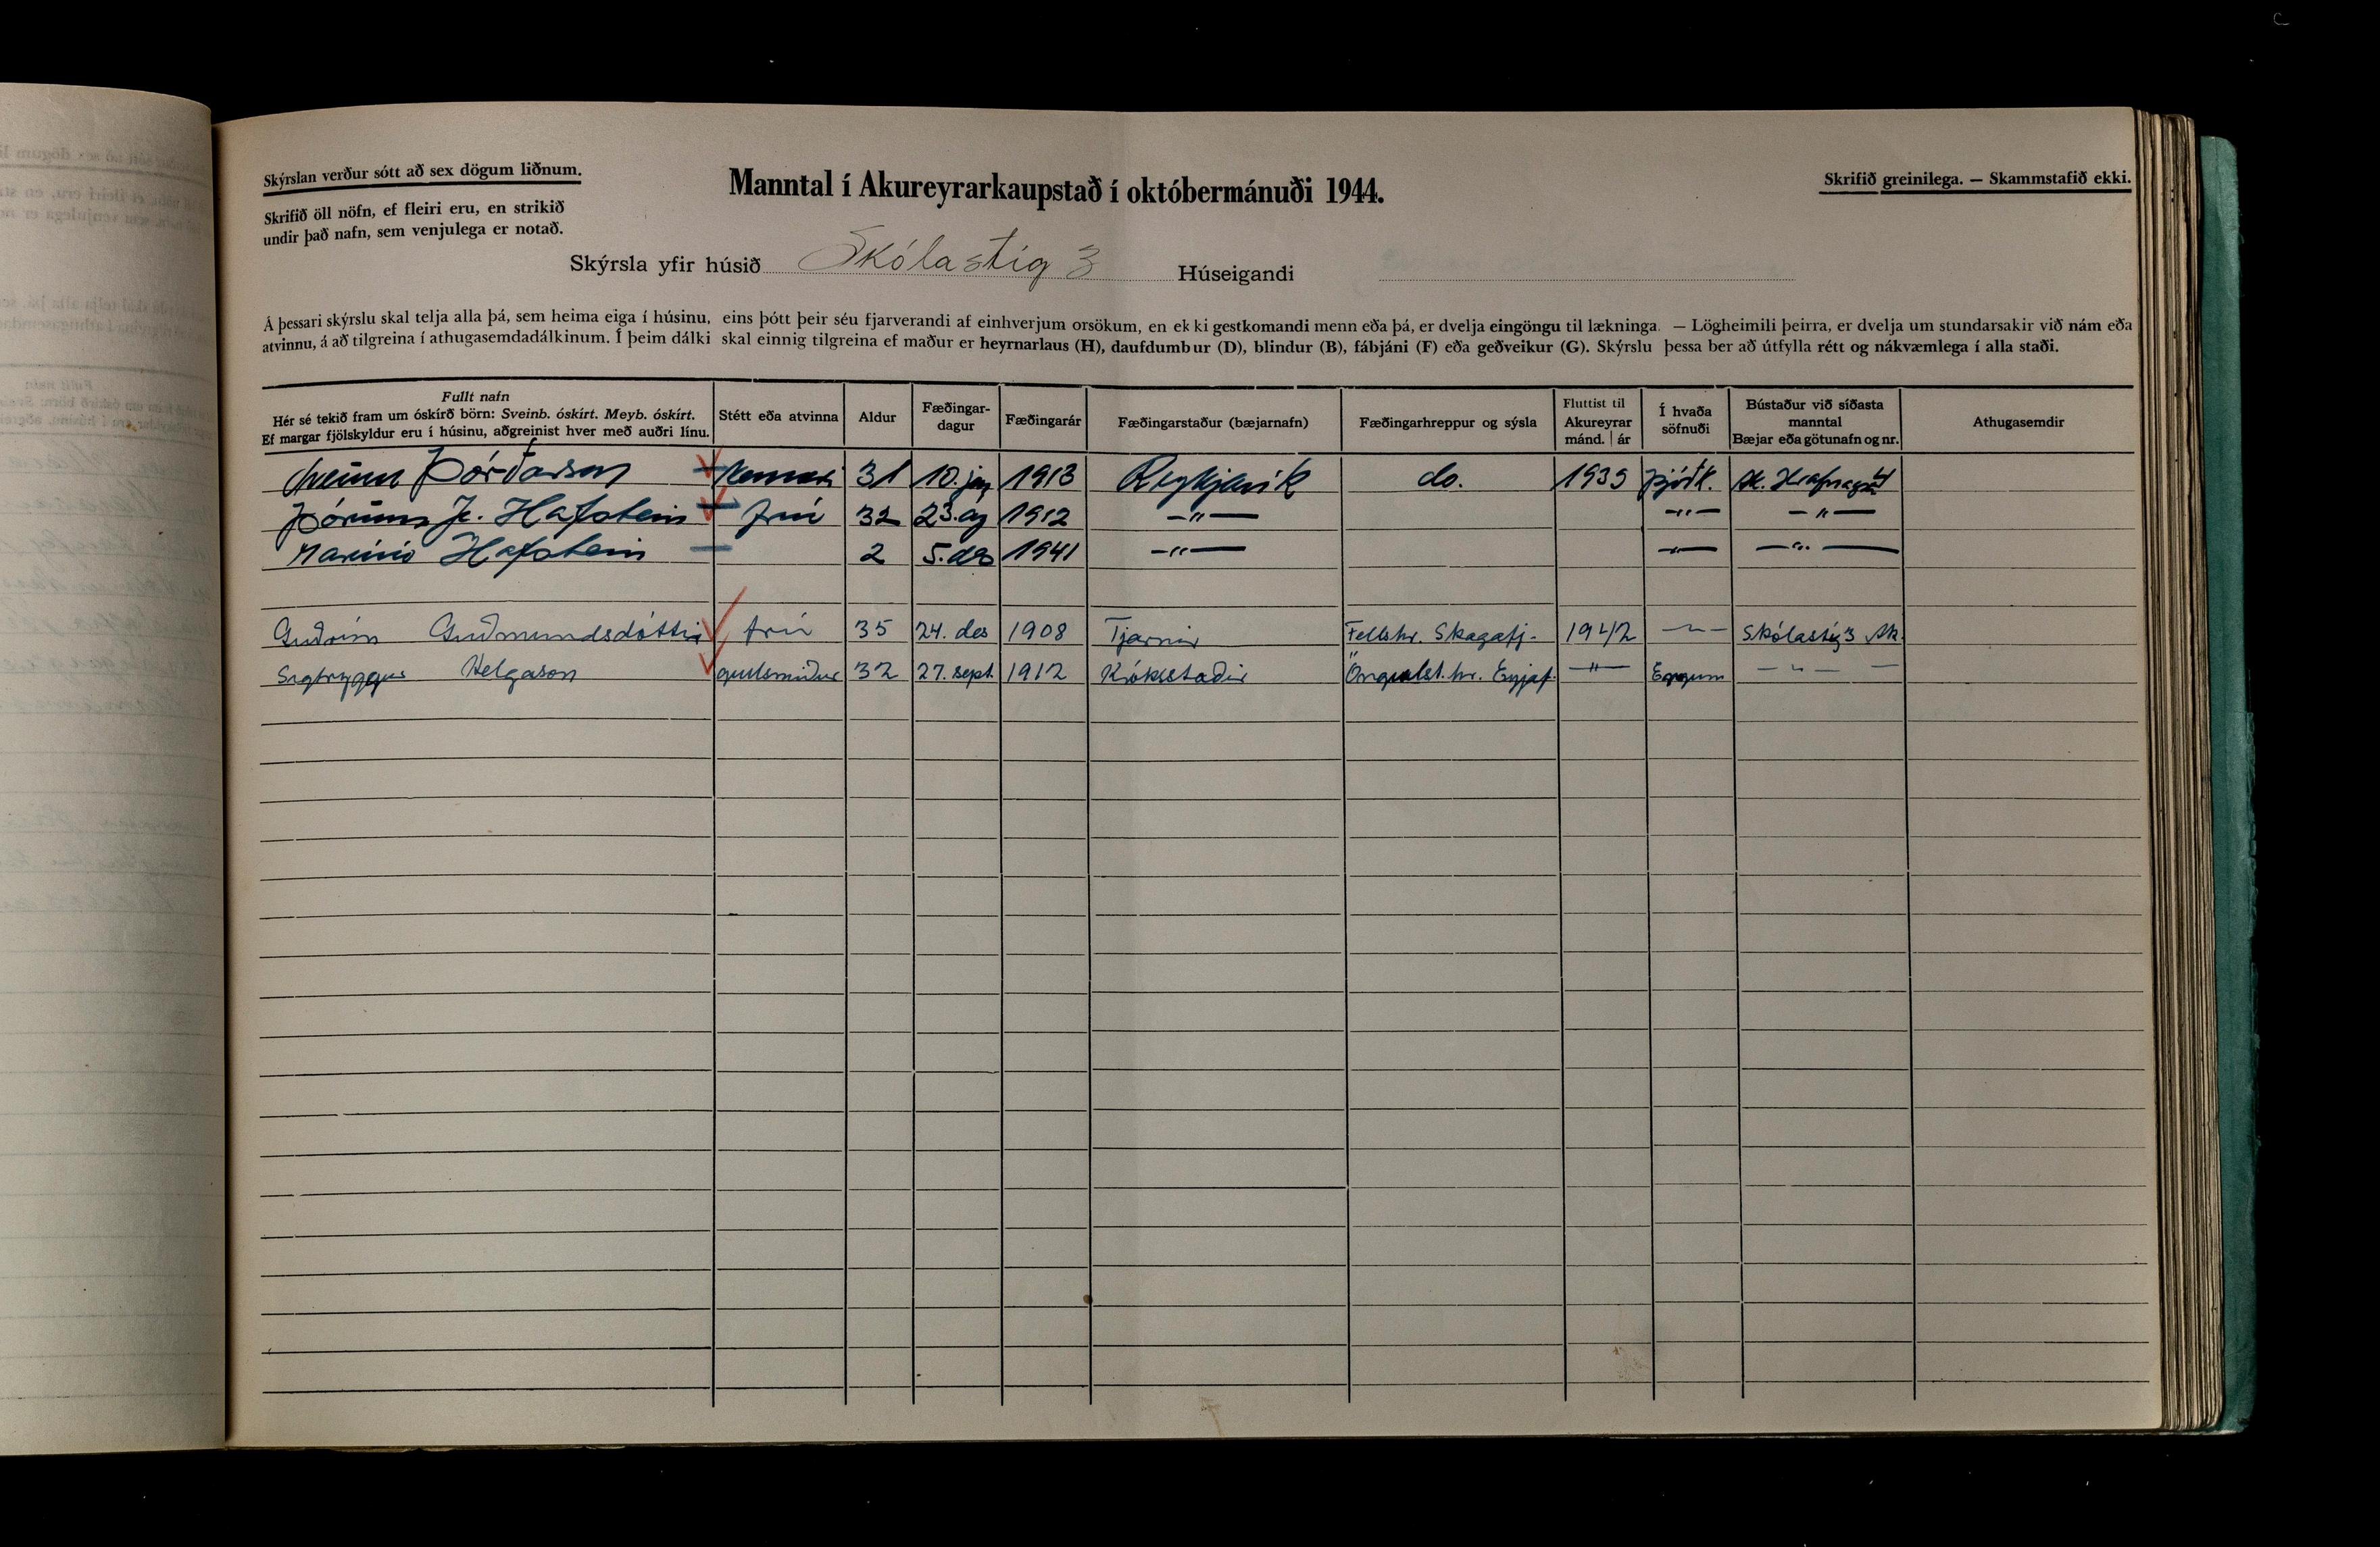 Skýrslan verður sótt að sex dögum liðnum.
Skrifið öll nöfn, ef fleiri eru, en strikið
undir það nafn, sem venjulega er notað.
Manntal í Akureyrarkaupstað í októbermánuði 1944.
Skrifið greinilega. — Skammstafið ekki.
Skýrsla yfir húsið Skólastíg 3 Húseigandi
Á þessari skýrslu skal telja alla þá, sem heima eiga í húsinu, eins þótt þeir séu fjarverandi af einhverjum orsökum, en ekki gestkomandi menn eða þá, er dvelja eingöngu til lækninga. — Lögheimili þeirra, er dvelja um stundarsakir við nám eða
atvinnu, á að tilgreina í athugasemdadálkinum. Í þeim dálki skal einnig tilgreina ef maður er heyrnarlaus (H), daufdumbur (D), blindur (B), fábjáni (F) eða geðveikur (G). Skýrslu þessa ber að útfylla rétt og nákvæmlega í alla staði.
Fullt nafn
Hér sé tekið fram um óskírð börn: Sveinb. óskírt. Meyb. óskírt.
Ef margar fjölskyldur eru í húsinu, aðgreinist hver með auðri línu.
Stétt eða atvinna
Aldur
Fæðingar-
dagur
Fæðingarár
Fæðingarstaður (bæjarnafn)
Fæðingarhreppur og sýsla
Fluttist til
Akureyrar
mánd. | ár
Í hvaða
söfnuði
Bústaður við síðasta
manntal
Bæjar eða götunafn og nr.
Athugasemdir
Þórðarson 31 10. jan 1913 Reykjavík do. 1939 Þjóðk.
Þórunn J. Hafstein frú 32 23. ag 1912 —"— —"— —"—
Hafstein 2 5. des 1941 —"— —"— —"—
Guðrún Guðmundsdóttir frú 35 24. des 1908 Tjarnir Fellshr. Skagafj. 1942 —"— Skólastíg 3 Ak.
Sigtryggur Helgason gullsmiður 32 27. sept. 1912 Króksstaðir Öngulst. hr. Eyjaf. —"— Engum —"—